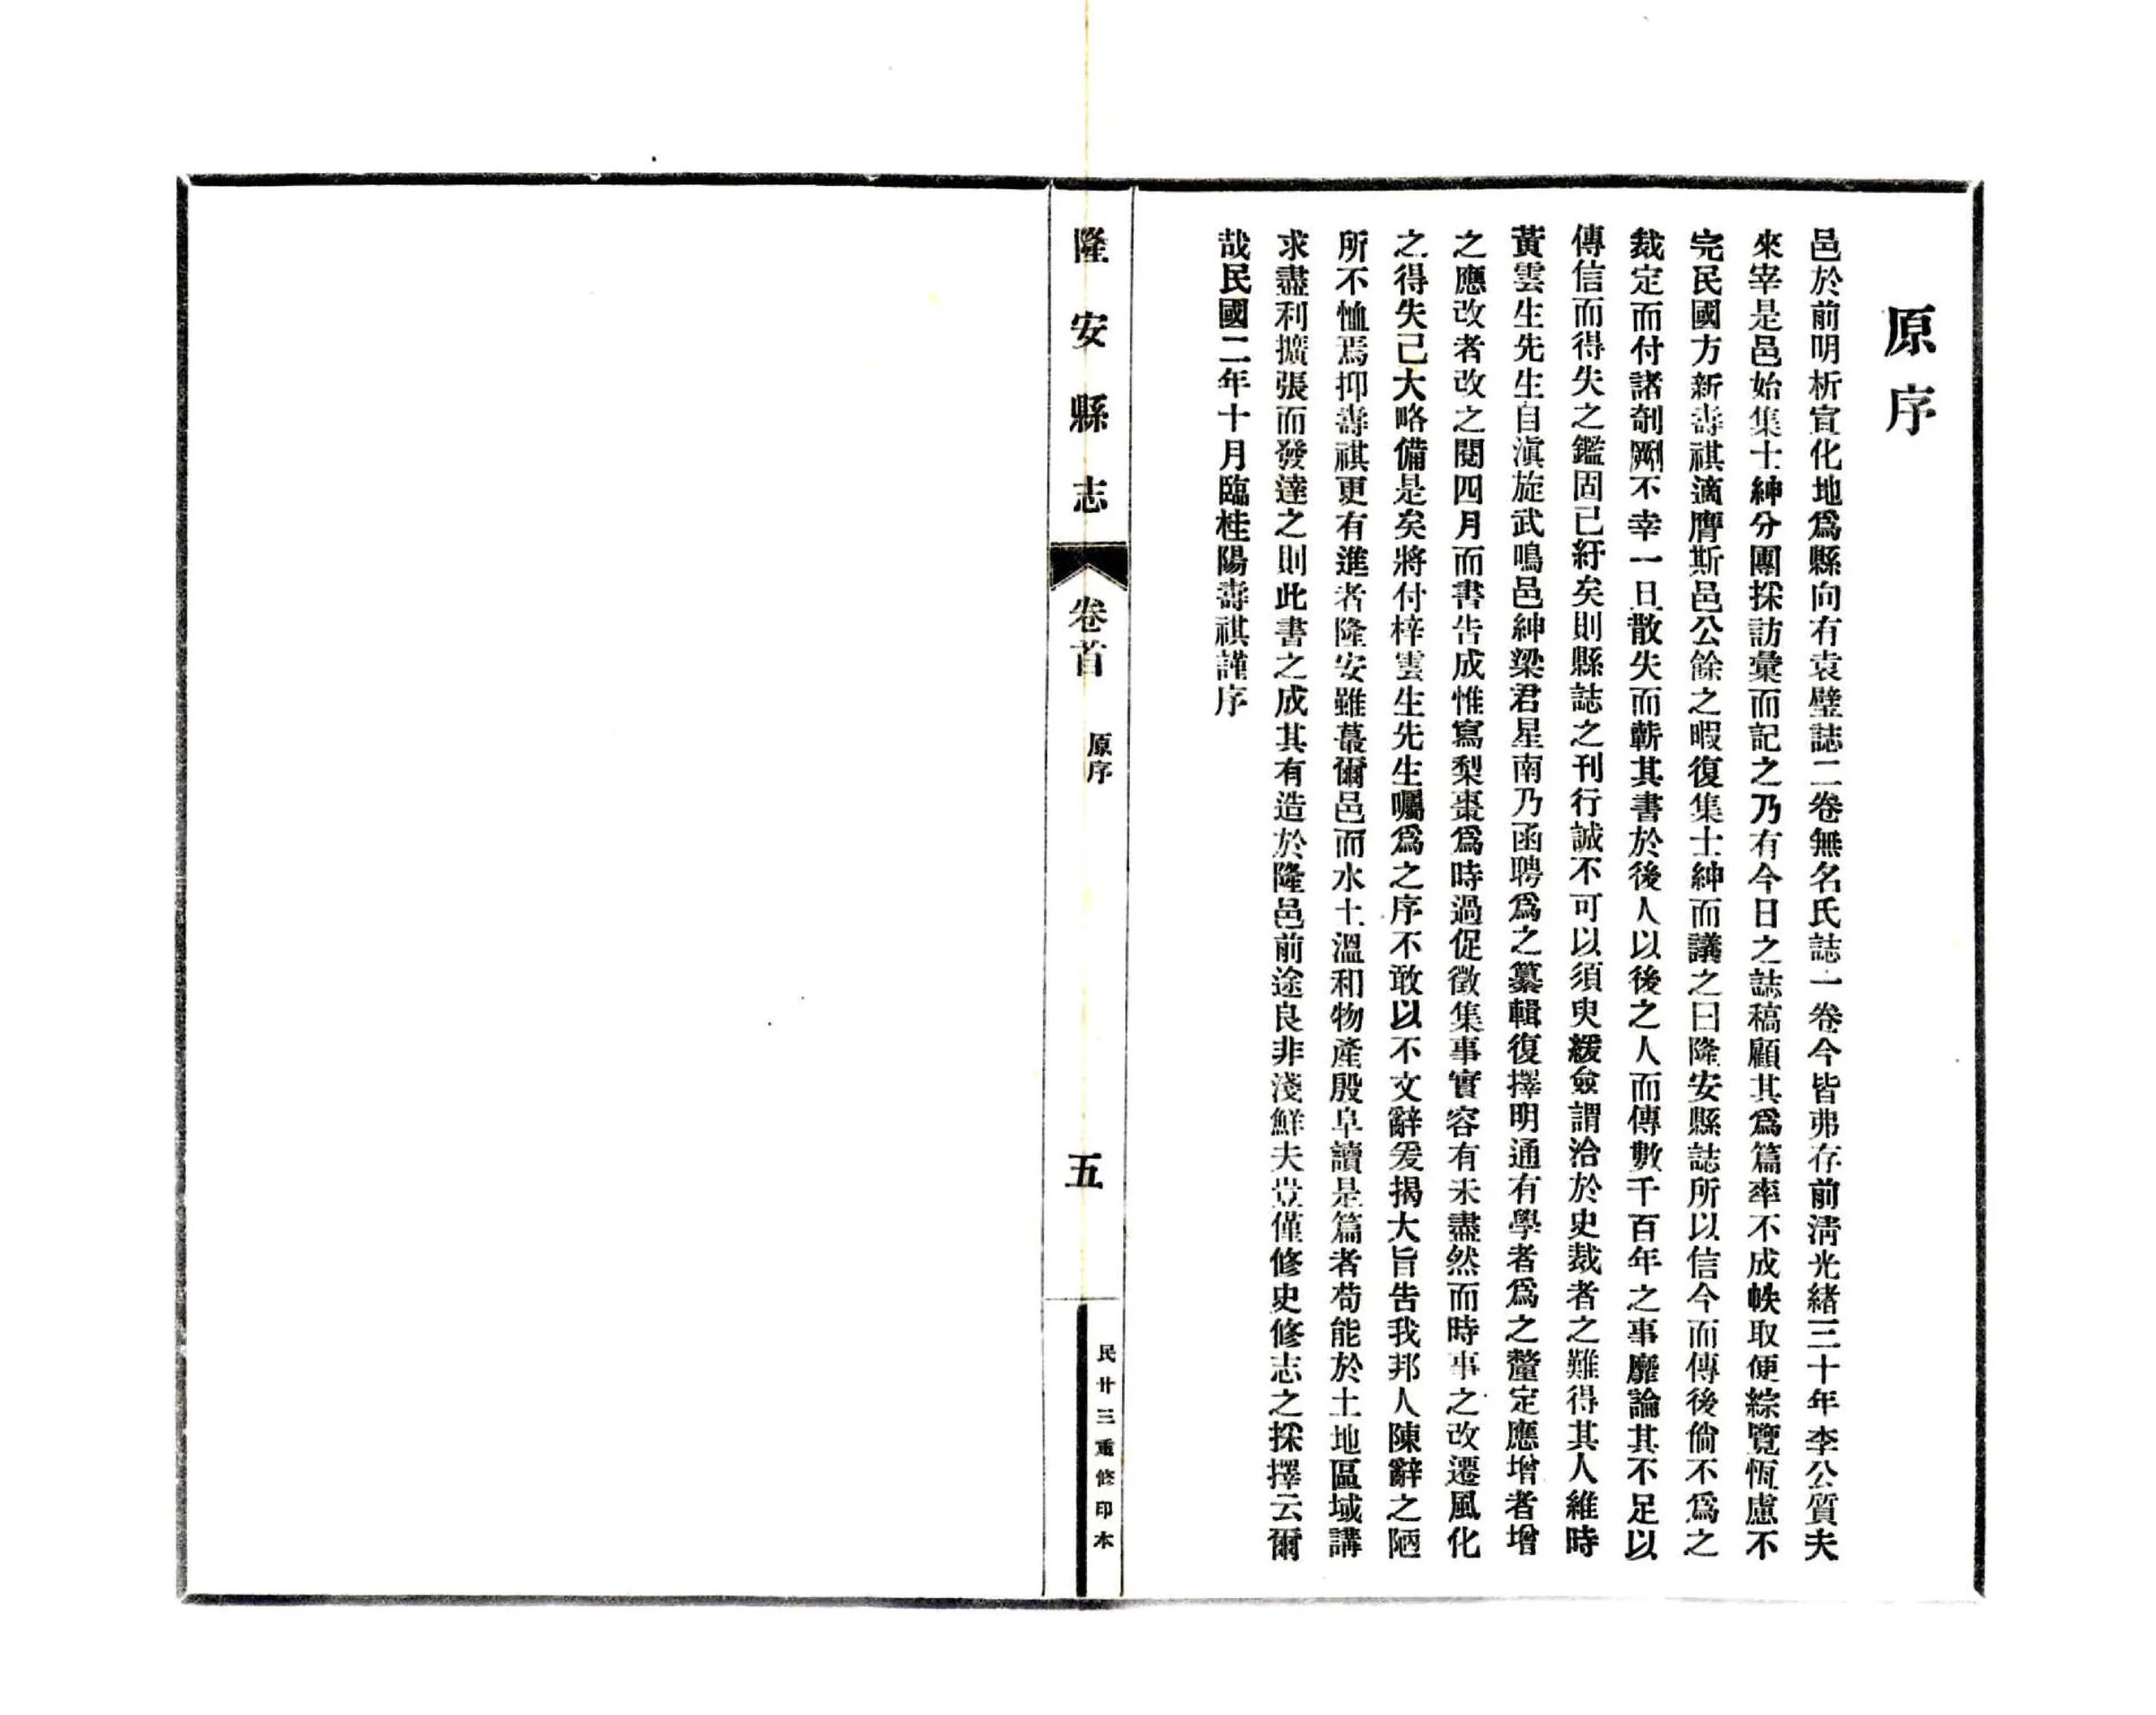 原序
邑於前明析宣化地爲縣向有袁璧誌二卷無名氏誌一卷今皆弗存前淸光緒三十年李公質夫
來宰是邑始集士紳分團採訪彙而記之乃有今日之誌稿顧其爲篇率不成帙取便綜覽恆慮不
完民國方新壽祺適膺斯邑公餘之暇復集士紳而議之曰隆安縣誌所以信今而傳後倘不爲之
裁定而付諸剞劂不幸一旦散失而蘄其書於後人以後之人而傳數千百年之事靡論其不足以
傳信而得失之鑑固已紆矣則縣誌之刊行誠不可以須臾緩僉謂洽於史裁者之難得其人維時
黃雲生先生自滇旋武鳴邑紳梁君星南乃函聘爲之纂輯復擇明通有學者爲之釐定應增者增
之應改者改之閱四月而書告成惟寫梨棗爲時過促徵集事實容有未盡然而時事之改遷風化
之得失已大略備是矣將付梓雲生先生囑爲之序不敢以不文辭爰揭大旨告我邦人陳辭之陋
所不恤焉抑壽祺更有進者隆安雖蕞爾邑而水土溫和物產殷阜讀是篇者苟能於土地區域講
求盡利擴張而發達之則此書之成其有造於隆邑前途良非淺鮮夫豈僅修史修志之採擇云爾
哉民國二年十月臨桂陽壽祺謹序
隆安縣志
卷首
原序
五
民廿三重修印本